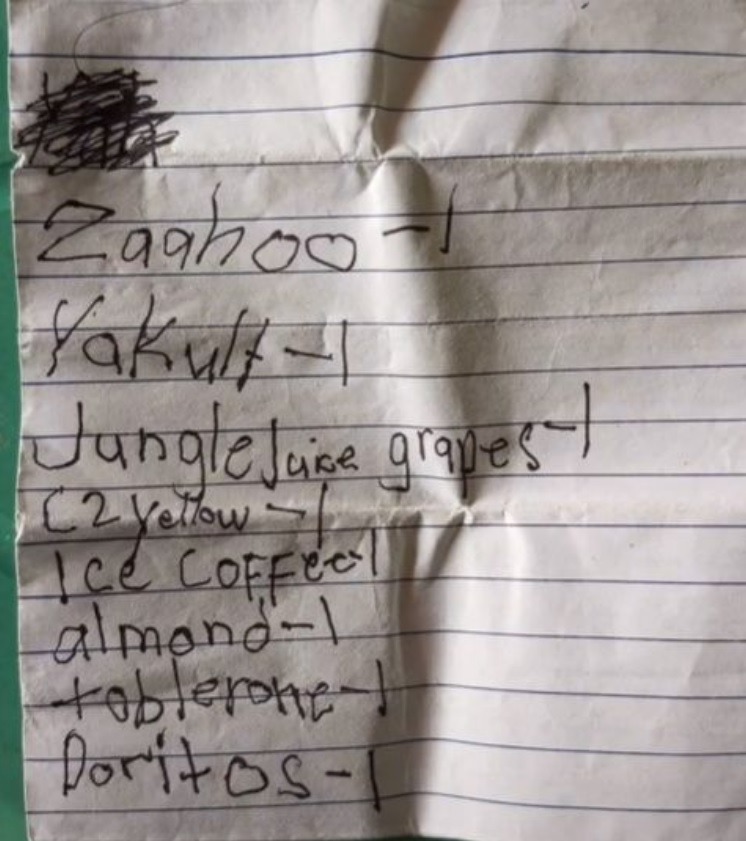 Zaahoo -1
Yakult -1
Jungle Juice grapes -1
C2 Yellow -1
Ice COFFee-1
almond-1
toblerone-1
Doritos-1